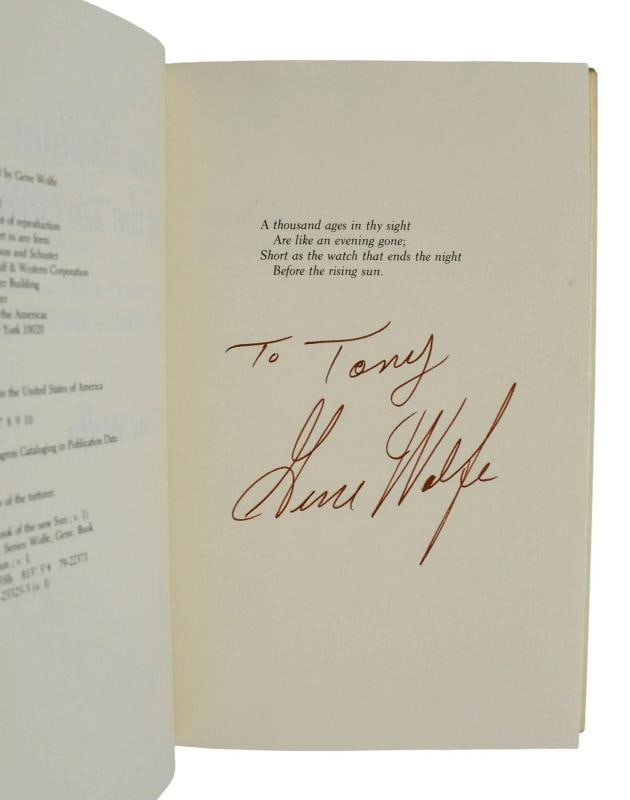 by Gene Wolfe
of reproduction
in any form
and Schuster
& Western Corporation
Building
the Americas
York 10020
in the United States of America
7 8 9 10
Cataloging in Publication Data
of the torturer.
of the new Sun ; v. 1)
Series: Wolfe, Gene. Book
; v. 1.
813'.5'4 79-22371
(v. 1)
A thousand ages in thy sight
Are like an evening gone;
Short as the watch that ends the night
Before the rising sun.
To Tony
Gene Wolfe